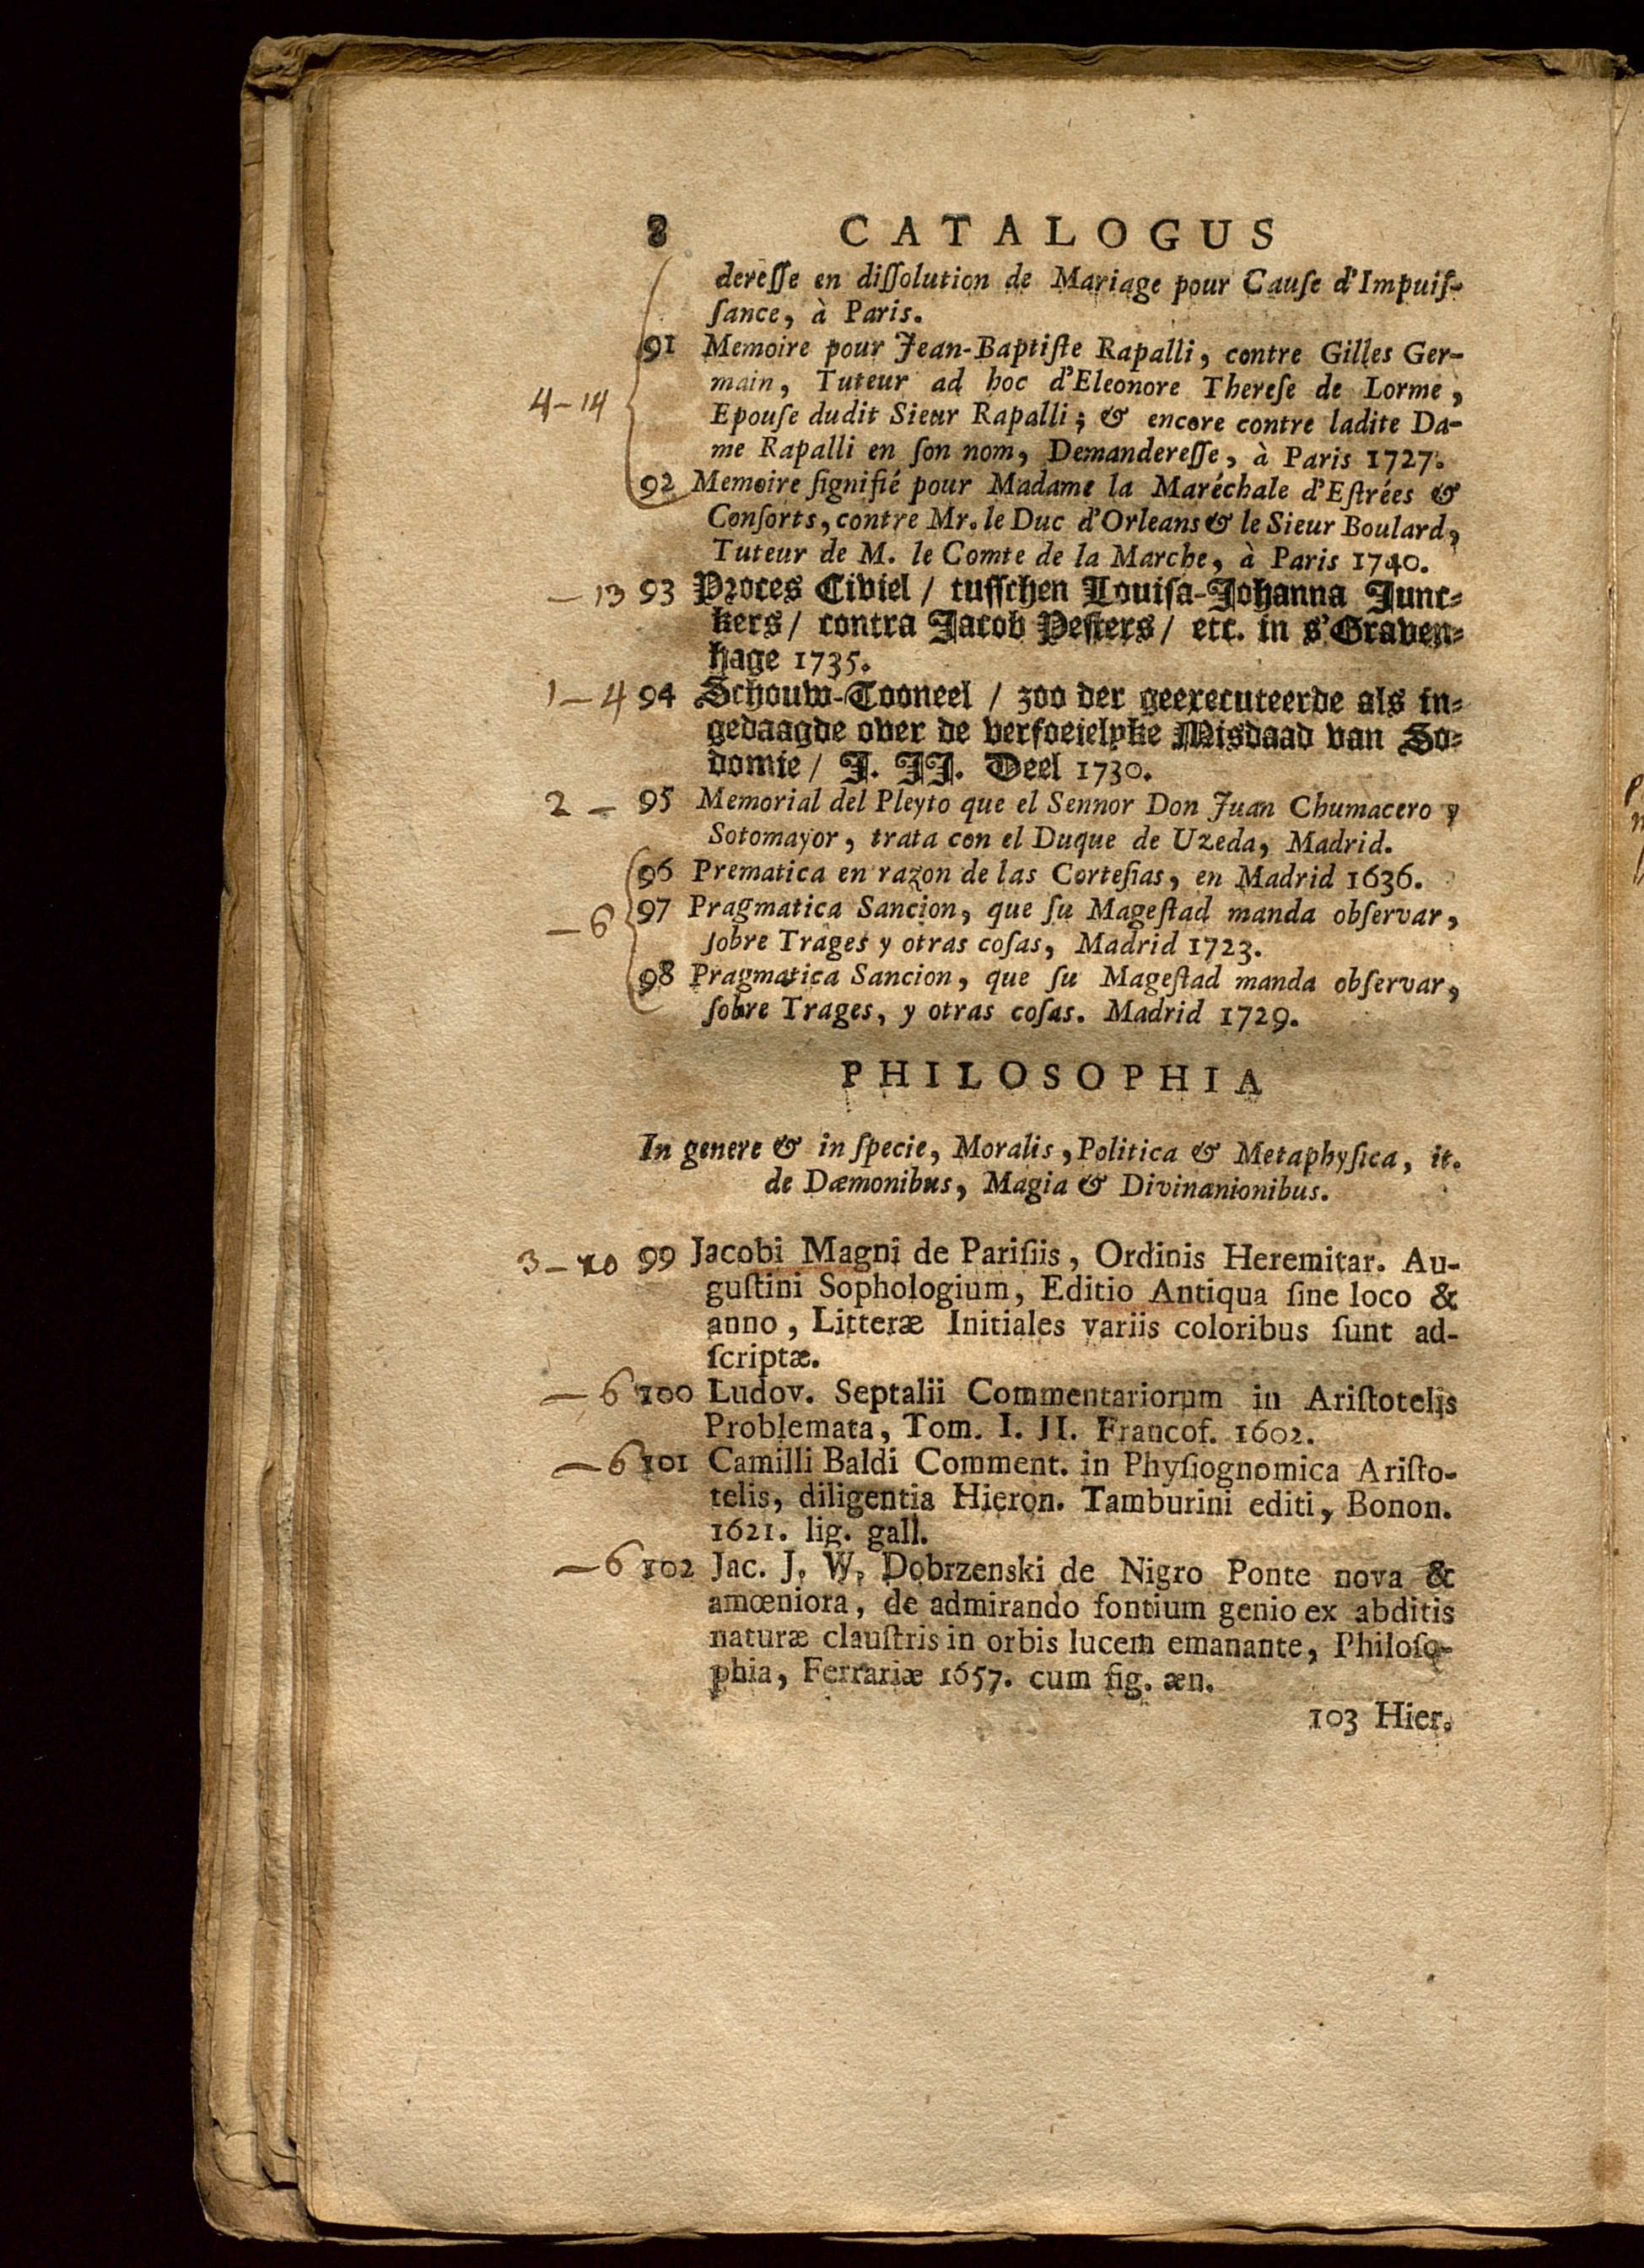 8 CATALOGUS
dereſſe en diſſolution de Mariage pour Cauſe d'Impuiſ-
ſance, à Paris.
91 Memoire pour Jean-Baptiſte Rapalli, contre Gilles Ger-
main, Tuteur ad hoc d'Eleonore Thereſe de Lorme,
4-14 Epouſe dudit Sieur Rapalli; & encore contre ladite Da-
me Rapalli en ſon nom, Demandereſſe, à Paris 1727.
92 Memoire ſignifié pour Madame la Maréchale d'Eſtrées &
Conſorts, contre Mr. le Duc d'Orleans & le Sieur Boulard,
Tuteur de M. le Comte de la Marche, à Paris 1740.
—13 93 Proces Civiel / tuſſchen Louiſa-Johanna Junc-
kers / contra Jacob Peſters / etc. in s'Graven-
hage 1735.
1—4 94 Schouw-Tooneel / zoo der geexecuteerde als in-
gedaagde over de verfoeielyke Misdaad van So-
domie / J. JJ. Deel 1730.
2 — 95 Memorial del Pleyto que el Sennor Don Juan Chumacero y
Sotomayor, trata con el Duque de Uzeda, Madrid.
96 Prematica en razon de las Corteſias, en Madrid 1636.
—6 97 Pragmatica Sancion, que ſu Mageſtad manda obſervar,
ſobre Trages y otras coſas, Madrid 1723.
98 Pragmatica Sancion, que ſu Mageſtad manda obſervar,
ſobre Trages, y otras coſas. Madrid 1729.
PHILOSOPHIA
In genere & in ſpecie, Moralis, Politica & Metaphyſica, it.
de Dæmonibus, Magia & Divinanionibus.
3—10 99 Jacobi Magni de Pariſiis, Ordinis Heremitar. Au-
guſtini Sophologium, Editio Antiqua ſine loco &
anno, Litteræ Initiales variis coloribus ſunt ad-
ſcriptæ.
—6 100 Ludov. Septalii Commentariorum in Ariſtotelis
Problemata, Tom. I. II. Francof. 1602.
—6 101 Camilli Baldi Comment. in Phyſiognomica Ariſto-
telis, diligentia Hieron. Tamburini editi, Bonon.
1621. lig. gall.
—6 102 Jac. J. W. Dobrzenski de Nigro Ponte nova &
amœniora, de admirando fontium genio ex abditis
naturæ clauſtris in orbis lucem emanante, Philoſo-
phia, Ferrariæ 1657. cum fig. æn.
103 Hier.